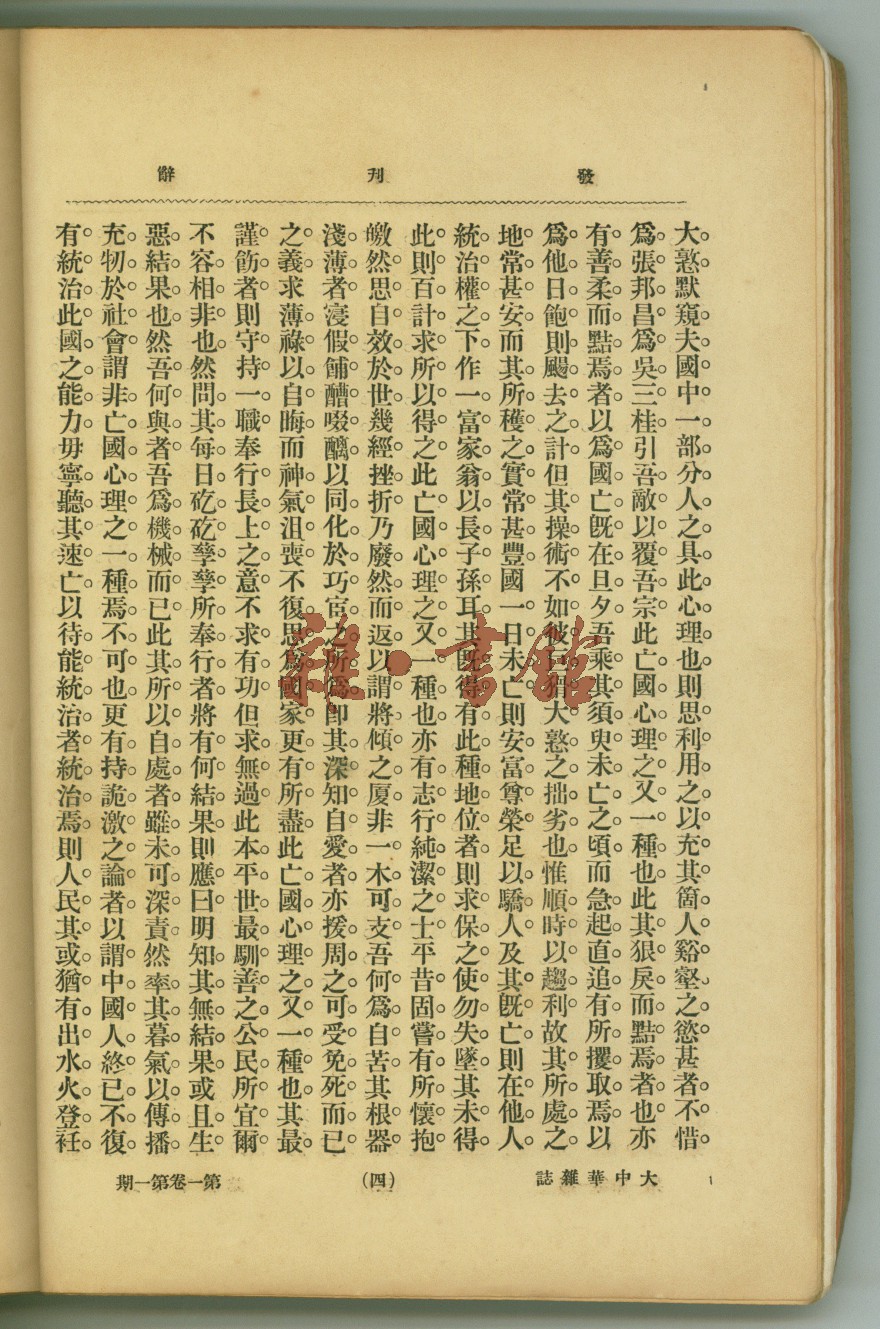 發刊辭
大憝默窺夫國中一部分人之具此心理也則思利用之以充其箇人谿壑之慾甚者不惜
爲張邦昌爲吳三桂引吾敵以覆吾宗此亡國心理之又一種也此其狠戾而黠焉者也亦
有善柔而黠焉者以爲國亡旣在旦夕吾乘其須臾未亡之頃而急起直追有所攫取焉以
爲他日飽則颺去之計但其操術不如彼巨猾大憝之拙劣也惟順時以趨利故其所處之
地常甚安而其所穫之實常甚豐國一日未亡則安富尊榮足以驕人及其旣亡則在他人
統治權之下作一富家翁以長子孫耳其旣得有此種地位者則求保之使勿失墜其未得
此則百計求所以得之此亡國心理之又一種也亦有志行純潔之士平昔固嘗有所懷抱
皦然思自效於世幾經挫折乃廢然而返以謂將傾之厦非一木可支吾何爲自苦其根器
淺薄者寖假餔醩啜醨以同化於巧宦之所爲卽其深知自愛者亦援周之可受免死而已
之義求薄祿以自晦而神氣沮喪不復思爲國家更有所盡此亡國心理之又一種也其最
謹飭者則守持一職奉行長上之意不求有功但求無過此本平世最馴善之公民所宜爾
不容相非也然問其每日矻矻孳孳所奉行者將有何結果則應曰明知其無結果或且生
惡結果也然吾何與者吾爲機械而已此其所以自處者雖未可深責然率其暮氣以傳播
充牣於社會謂非亡國心理之一種焉不可也更有持詭激之論者以謂中國人終已不復
有統治此國之能力毋寧聽其速亡以待能統治者統治焉則人民其或猶有出水火登衽
大中華雜誌
(四)
第一卷第一期
雜·書館